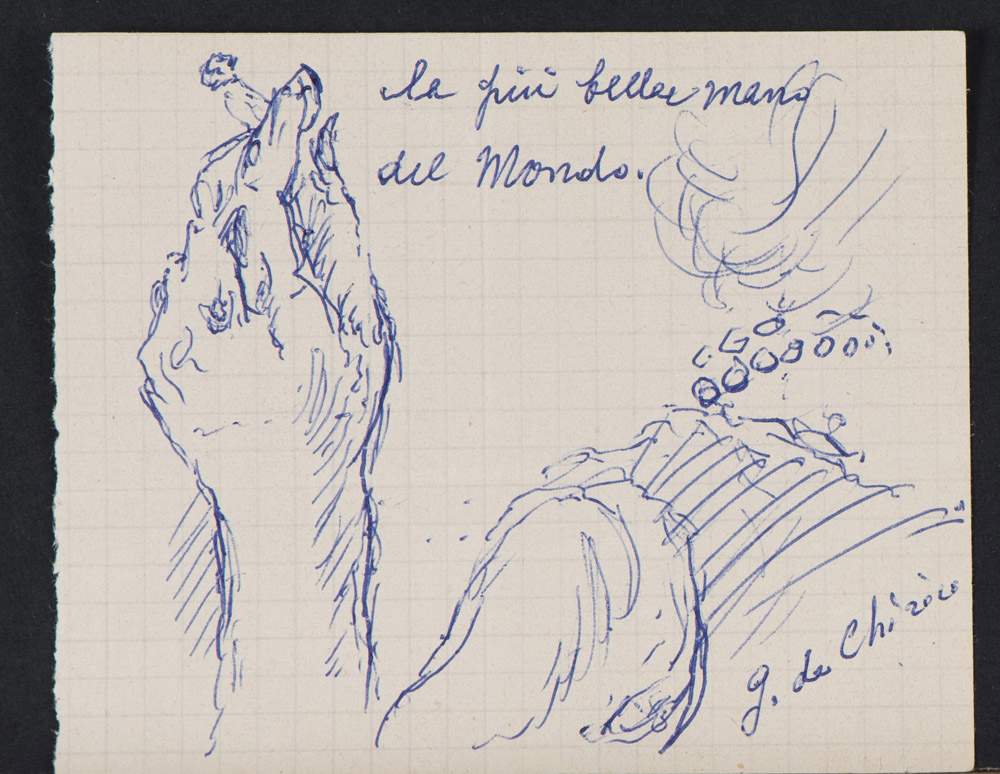 la più bella mano
del Mondo.
g. de Chirico